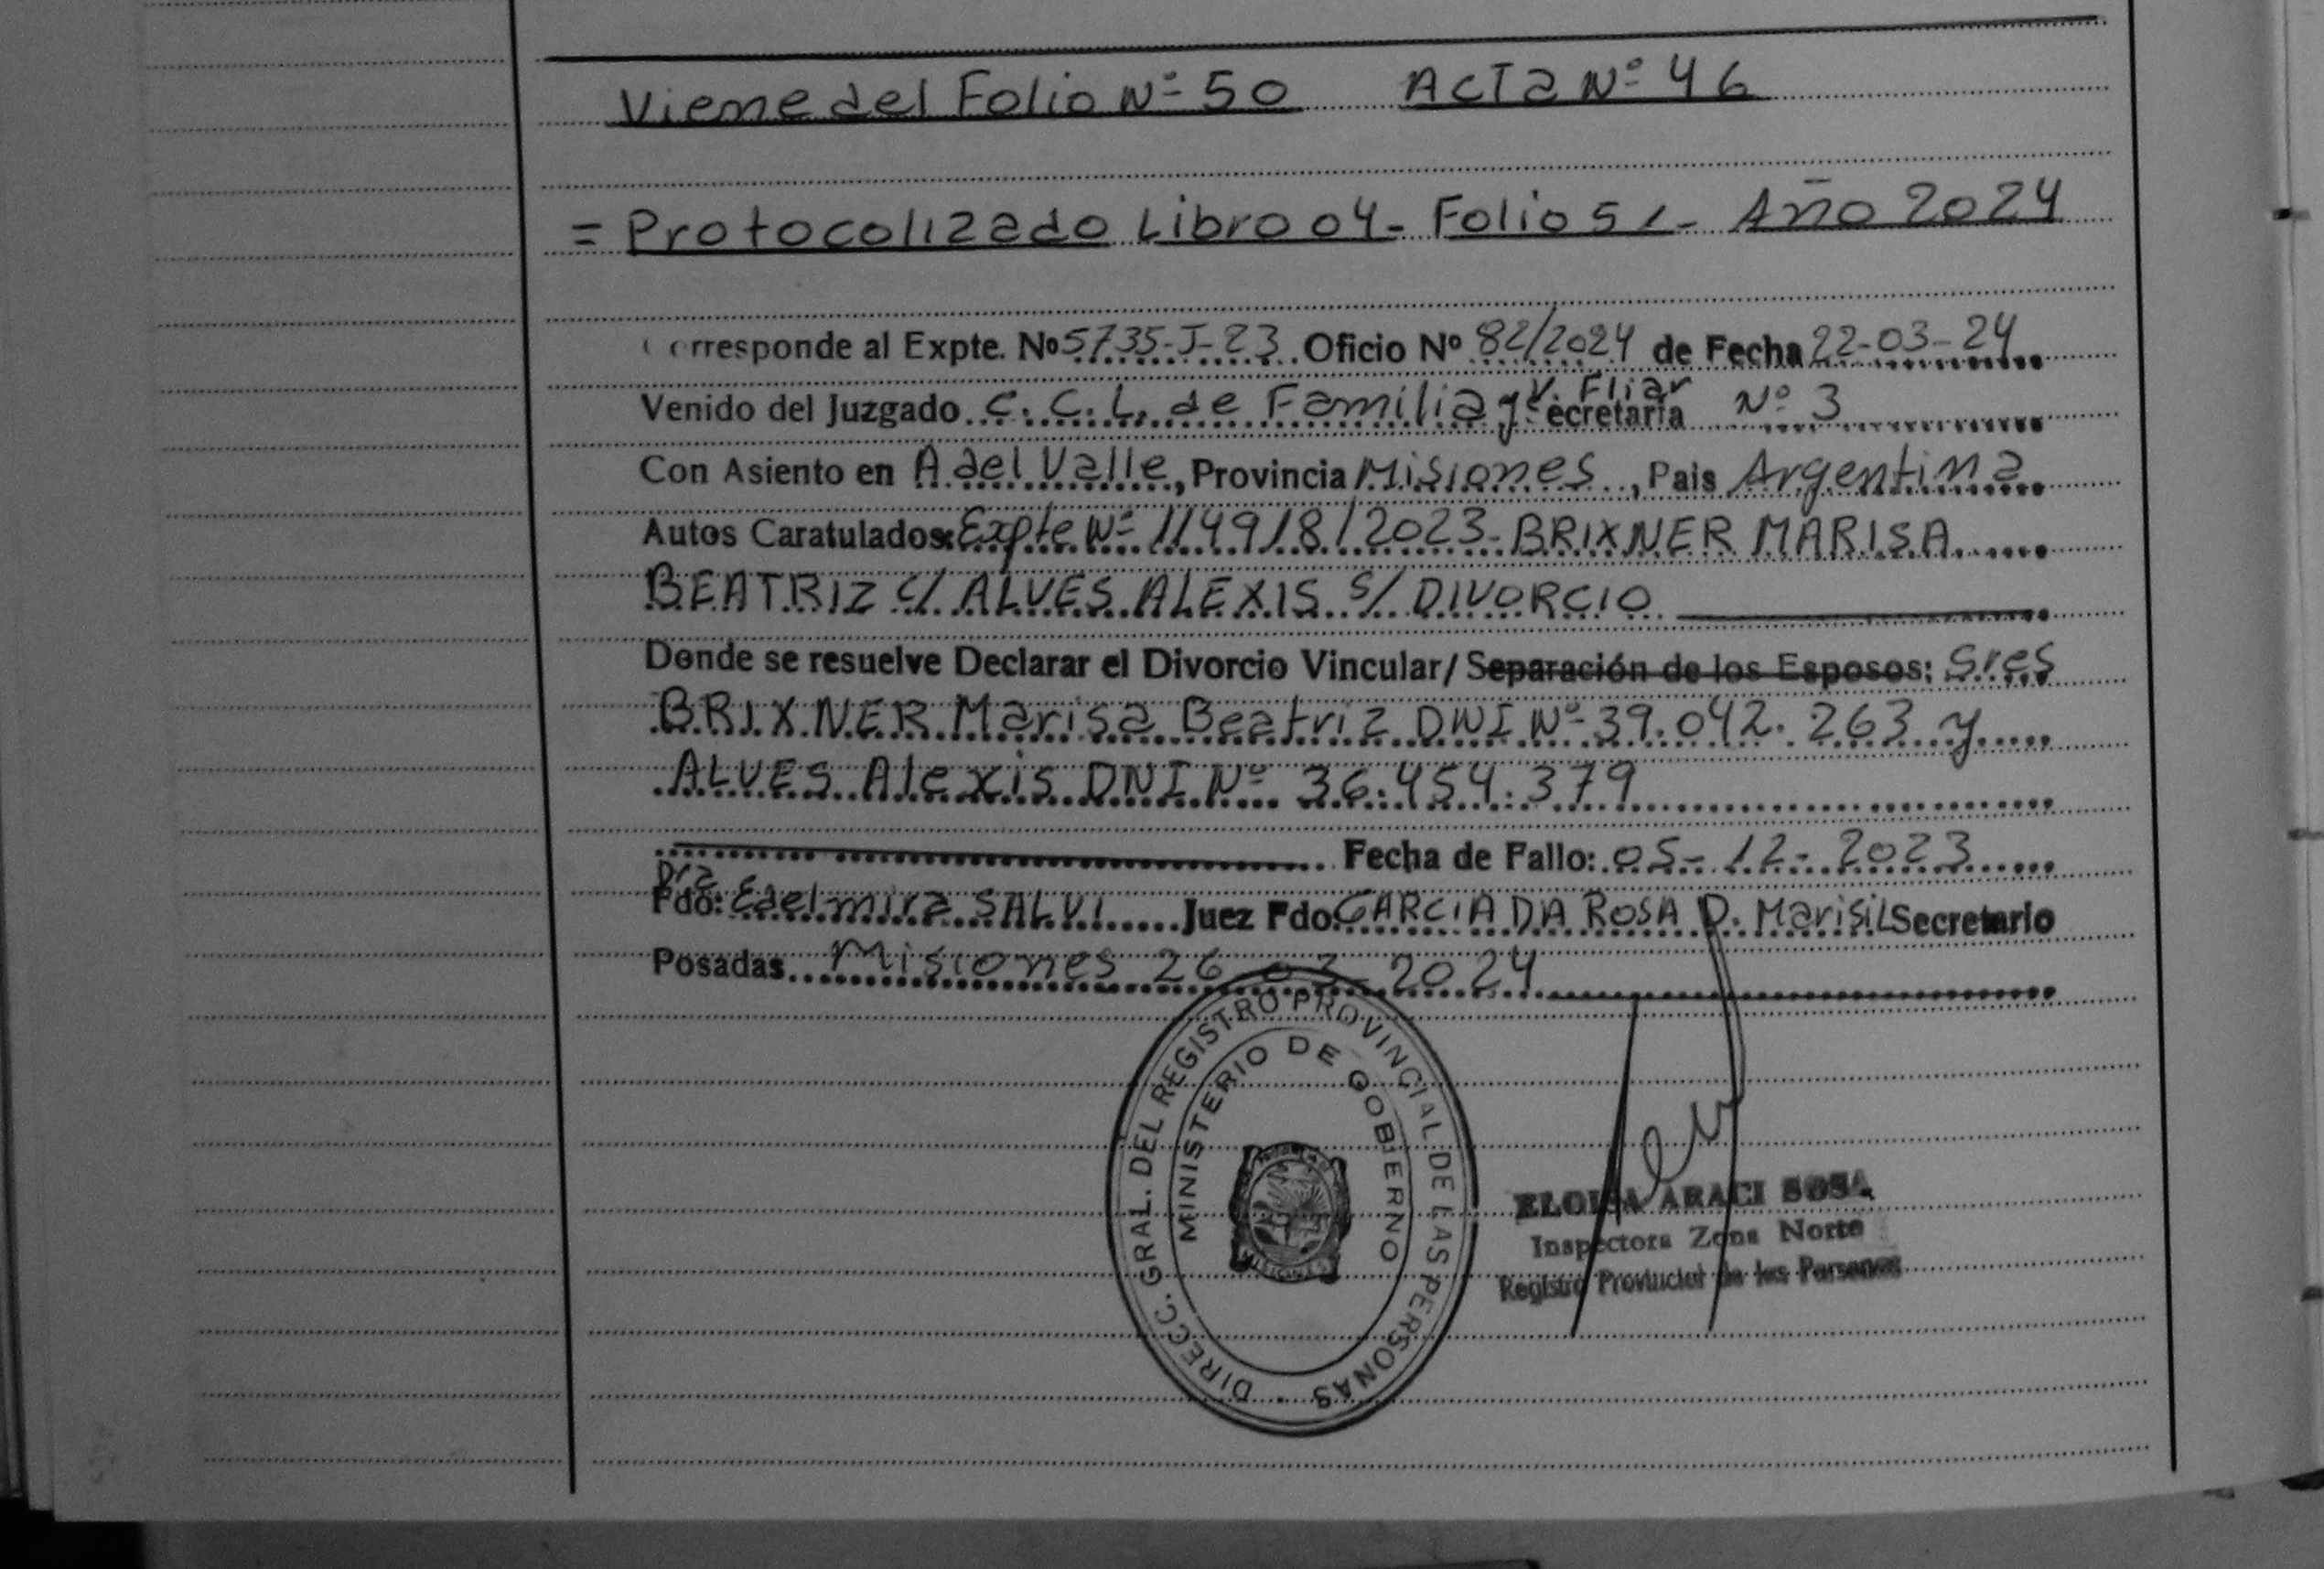 Viene del Folio Nº 50 ACTA Nº 46
= Protocolizado Libro 04 - Folio 51 - Año 2024
Corresponde al Expte. Nº 5735-J-23 Oficio Nº 82/2024 de Fecha 22-03-24
Venido del Juzgado C. C. L. de Familia y V. Fliar Secretaría Nº 3
Con Asiento en A del Valle, Provincia Misiones, Pais Argentina
Autos Caratulados: Expte Nº 114918/2023 - BRIXNER MARISA
BEATRIZ C/ ALVES ALEXIS S/ DIVORCIO
Donde se resuelve Declarar el Divorcio Vincular/ Separación de los Esposos: Sres
BRIXNER Marisa Beatriz DNI Nº 39.042.263 y
ALVES Alexis DNI Nº 36.454.379
Fecha de Fallo: 05-12-2023
Fdo: Dra Edelmira SALVI Juez Fdo. GARCIA DA ROSA D. Marisil Secretario
Posadas Misiones 26-03-2024
DIRECC. GRAL. DEL REGISTRO PROVINCIAL DE LAS PERSONAS
MINISTERIO DE GOBIERNO
MISIONES
ELOISA ARACI SOSA
Inspectora Zona Norte
Registro Provincial de las Personas